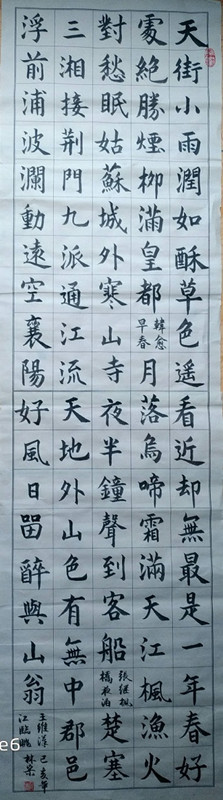 天街小雨潤如酥草色遙看近却無最是一年春好
處絕勝煙柳滿皇都韓愈早春月落烏啼霜滿天江楓漁火
對愁眠姑蘇城外寒山寺夜半鐘聲到客船張継楓橋夜泊楚塞
三湘接荊門九派通江流天地外山色有無中郡邑
浮前浦波瀾動遠空襄陽好風日畱醉與山翁王維漢江臨眺己亥
e6